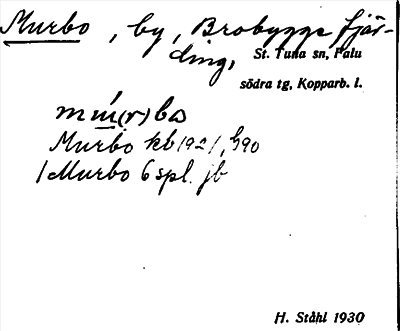 Murbo, by, Brobygge fjär-
ding,
St. Tuna sn, Falu
södra tg, Kopparb. l.
Murbo kb 1921,
Murbo 6 spl. jb
H. Ståhl 1930